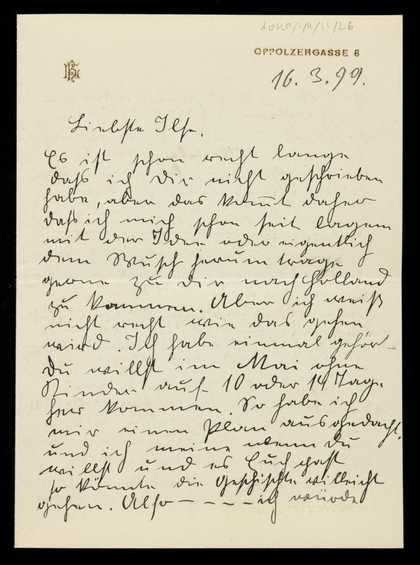 OPPOLZERGASSE 6
16. 3. 99.
Liebste Ilse.
Es ist schon recht lange
daß ich Dir nicht geschrieben
habe, aber das komt daher
daß ich mich schon seit lagem
mit der Idee oder eigentlich
dem Wusch herum trage
gerne zu dir nach Holland
zu kommen. Aber ich weiß
nicht recht wie das gehen
wird. Ich habe einmal gehört
Du willst im Mai ohne
Kinder auf 10 oder 14 Tage
her kommen. So habe ich
mir einen Plan ausgedacht,
und ich meine wenn du
willst und es Euch past
so könnte die Geschichte villeicht
gehen. Also – – – – ich würde